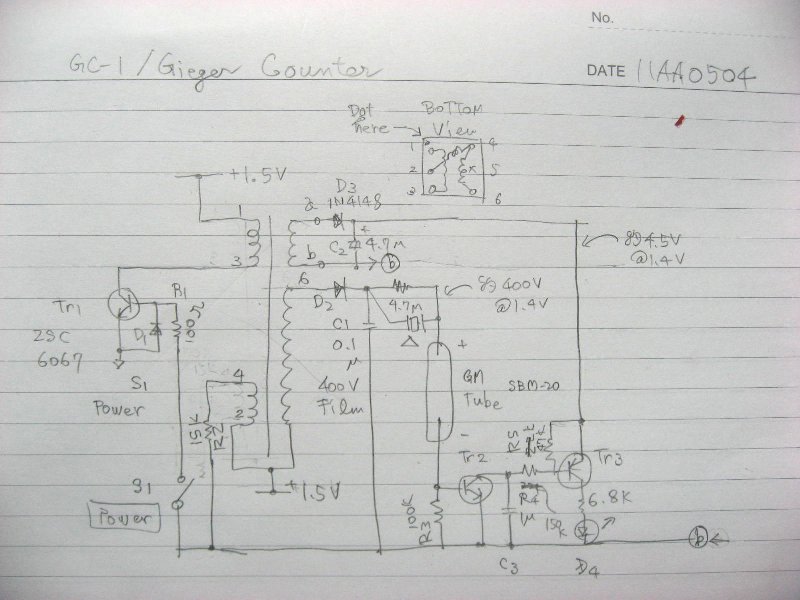 No.
GC-1 / Gieger Counter
DATE 11AA0504
Dot here
BOTTOM View
1
4
2
5
3
6
+1.5V
D3
1N4148
a
+
1
3
b
C2
4.7M
b
約4.5V
@1.4V
6
D2
4.7M
約400V
@1.4V
Tr1
2SC
6067
R1
D1
C1
0.1
μ
400V
Film
+
GM
Tube
SBM-20
S1
Power
4
2
151K
R2
-
R5
Tr2
Tr3
+1.5V
S1
Power
100K
R3
R4
1μ
150
K
6.8K
b
C3
D4